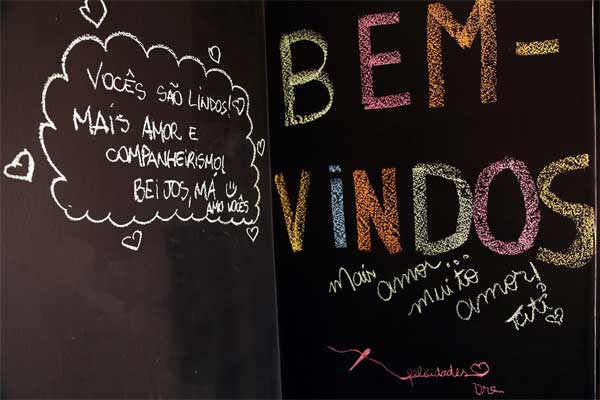 VOCÊS SÃO LINDOS!
MAIS AMOR E
COMPANHEIRISMO!
BEIJOS, MÁ
AMO VOCÊS
BEM-
VINDOS
Mais amor...
muito
amor!
Titi
felicidades
Dre